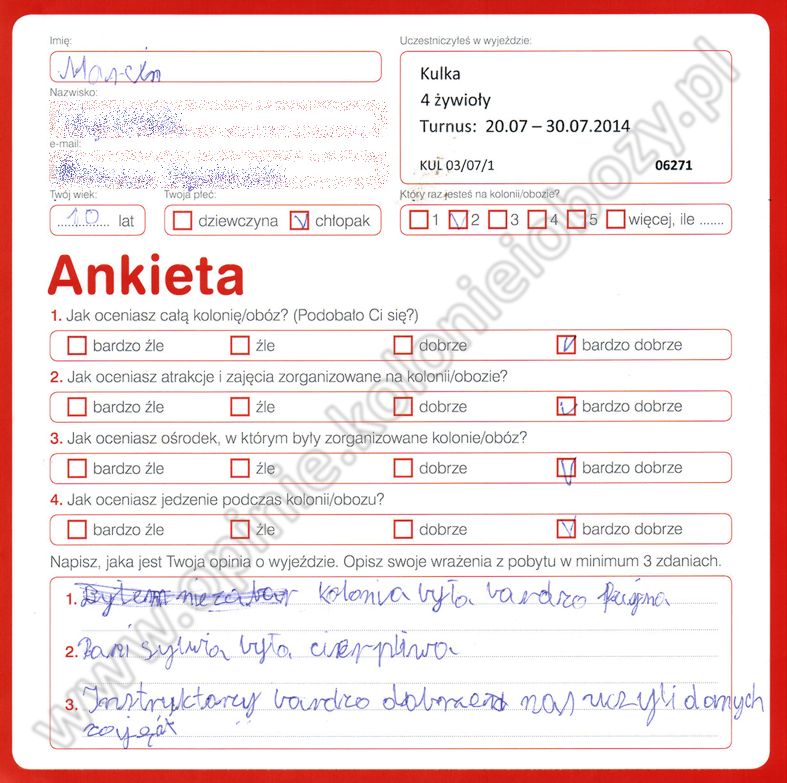 Imię:
Marcin
Nazwisko:
e-mail:
Twój wiek:
10 lat
Twoja płeć:
dziewczyna chłopak
Uczestniczyłeś w wyjeździe:
Kulka
4 żywioły
Turnus: 20.07 – 30.07.2014
KUL 03/07/1 06271
Który raz jesteś na kolonii/obozie?
1 2 3 4 5 więcej, ile .......
Ankieta
1. Jak oceniasz całą kolonię/obóz? (Podobało Ci się?)
bardzo źle źle dobrze bardzo dobrze
2. Jak oceniasz atrakcje i zajęcia zorganizowane na kolonii/obozie?
bardzo źle źle dobrze bardzo dobrze
3. Jak oceniasz ośrodek, w którym były zorganizowane kolonie/obóz?
bardzo źle źle dobrze bardzo dobrze
4. Jak oceniasz jedzenie podczas kolonii/obozu?
bardzo źle źle dobrze bardzo dobrze
Napisz, jaka jest Twoja opinia o wyjeździe. Opisz swoje wrażenia z pobytu w minimum 3 zdaniach.
1. kolonia była bardzo
2. Pani Sylwia była cierpliwa
3. Instryktorzy bardzo dobrze nas uczyli danych
zajęć
www.opinie.kolonieiobozy.pl